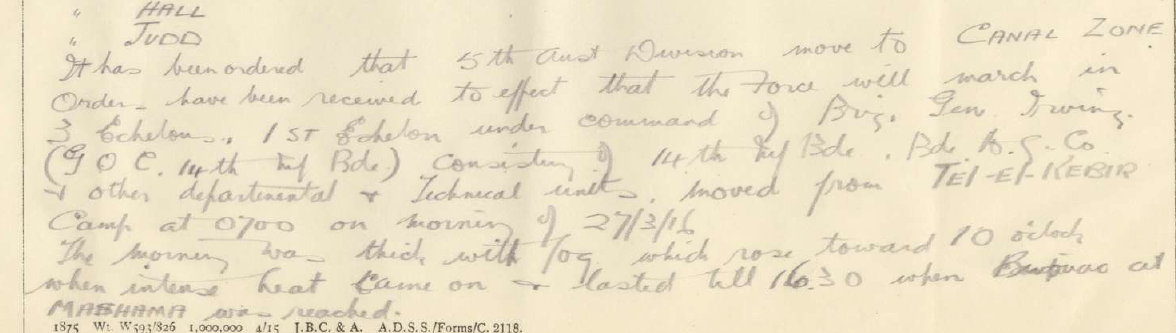 " HALL
" JUDD
It has been ordered that 5th Aust Division move to CANAL ZONE
Orders have been received to effect that the Force will march in
3 Echelons. 1ST Echelon under command of Brig. Gen Irving.
(G O C. 14th Inf Bde.) Consisting of 14th Inf Bde. Bde M.G. Co
+ other departmental + Technical units, moved from TEL-EL-KEBIR
Camp at 0700 on morning of 27/3/16
The morning was thick with fog which rose toward 10 o'clock
when intense heat came on + lasted till 1630 when Bivouac at
MAHSAMA was reached.
1875 Wt. W593/826 1,000,000 4/15 J.B.C. & A. A.D.S.S./Forms/C. 2118.